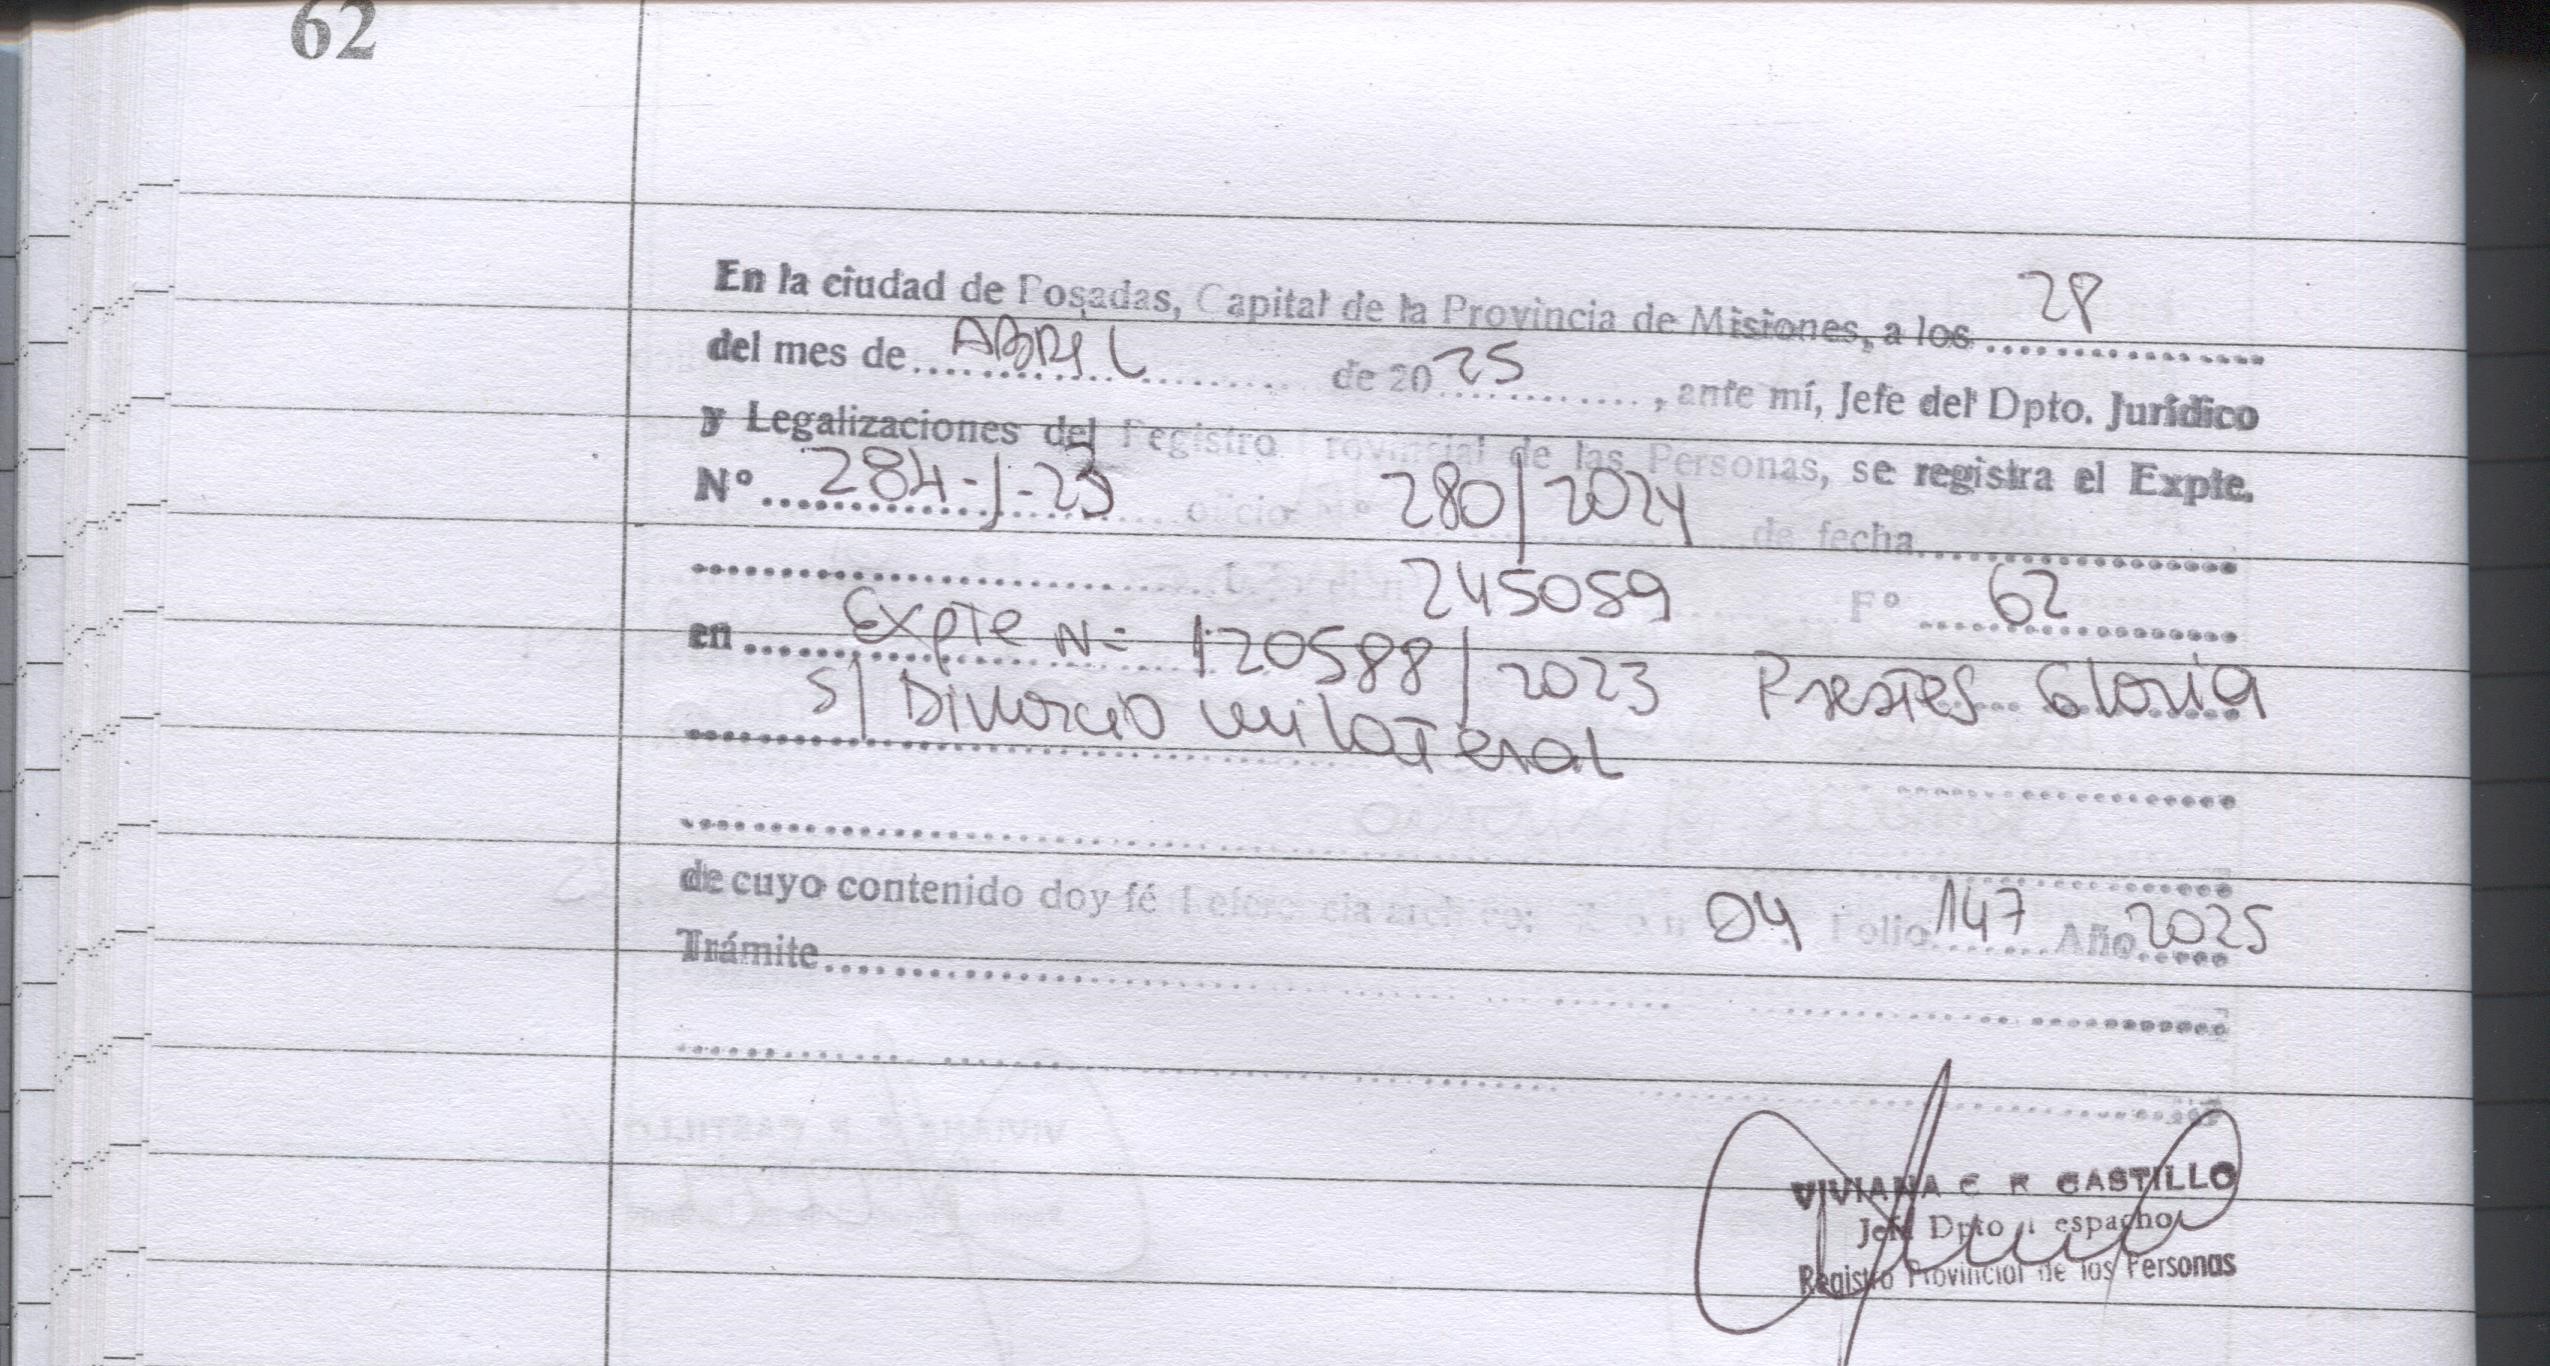 62
En la ciudad de Posadas, Capital de la Provincia de Misiones, a los 28
del mes de ABRIL de 2025, ante mí, Jefe del Dpto. Jurídico
y Legalizaciones del Registro Provincial de las Personas, se registra el Expte.
Nº 284-J-23 oficio Nº 280/2024 de fecha
245089 Fº 62
en Expte N= 120588/2023 Prestes Gloria
s/ Divorcio unilateral
de cuyo contenido doy fé Referencia archivo: 04 Folio 147 Año 2025
Trámite
VIVIANA C R CASTILLO
Jefa Dpto Despacho
Registro Provincial de las Personas